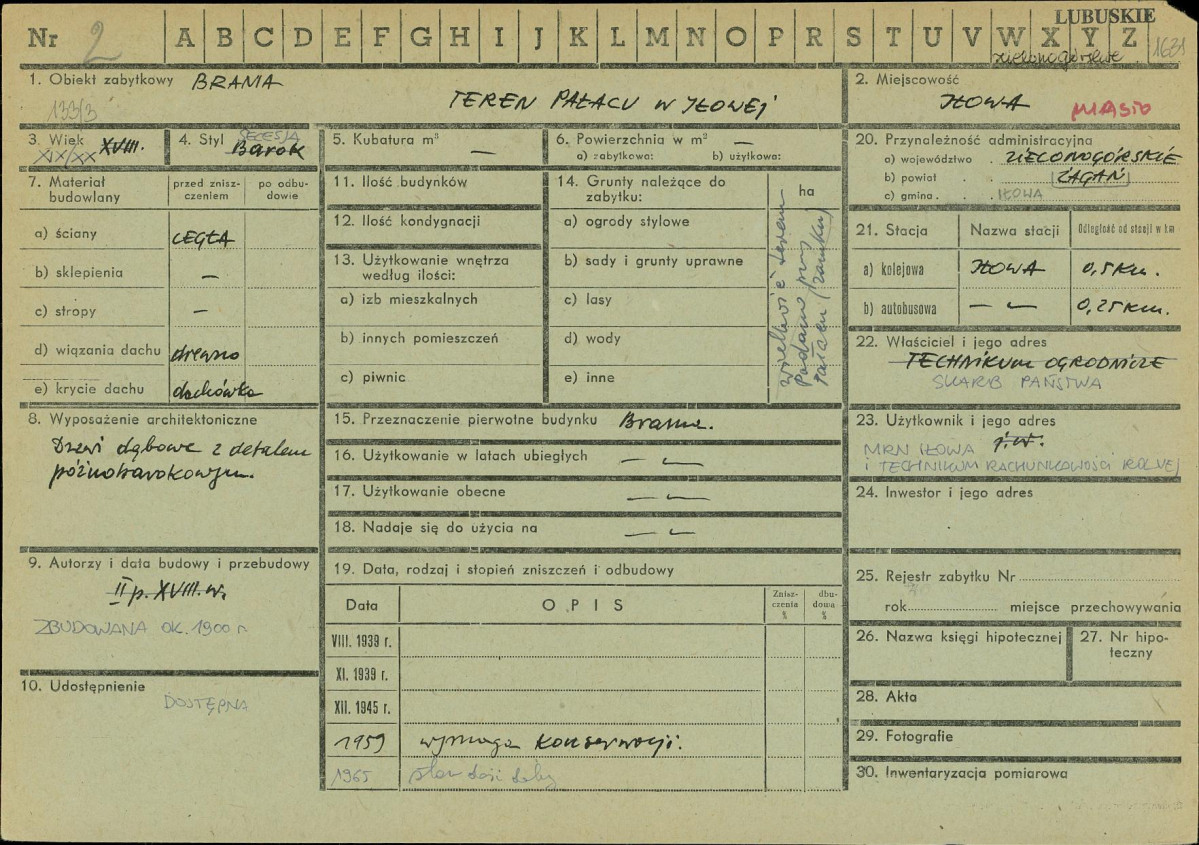 LUBUSKIE
Nr 2 A B C D E F G H I J K L M N O P R S T U V W X Y Z
zielonogórskie 1631
1. Obiekt zabytkowy BRAMA
133/3 TEREN PAŁACU W IŁOWEJ
2. Miejscowość
IŁOWA MIASTO
3. Wiek XVIII.
XIX/XX
4. Styl SECESJA
Barok
5. Kubatura m³
—
6. Powierzchnia w m² —
a) zabytkowa: b) użytkowa:
20. Przynależność administracyjna
a) województwo ZIELONOGÓRSKIE
b) powiat ŻAGAŃ
c) gmina IŁOWA
7. Materiał budowlany
przed znisz-
czeniem
po odbu-
dowie
a) ściany CEGŁA
b) sklepienia —
c) stropy —
d) wiązania dachu drewno
e) krycie dachu dachówka
11. Ilość budynków
12. Ilość kondygnacji
13. Użytkowanie wnętrza
według ilości:
a) izb mieszkalnych
b) innych pomieszczeń
c) piwnic
14. Grunty należące do
zabytku:
ha
a) ogrody stylowe
b) sady i grunty uprawne
c) lasy
d) wody
e) inne
wielkość terenu
podano przy
pałacu (zamku)
21. Stacja Nazwa stacji Odległość od stacji w km
a) kolejowa IŁOWA 0,5 km.
b) autobusowa — „ — 0,25 km.
22. Właściciel i jego adres
TECHNIKUM OGRODNICZE
SKARB PAŃSTWA
8. Wyposażenie architektoniczne
Drzwi dębowe z detalem
późnobarokowym.
15. Przeznaczenie pierwotne budynku Brama.
16. Użytkowanie w latach ubiegłych — „ —
17. Użytkowanie obecne — „ —
18. Nadaje się do użycia na — „ —
23. Użytkownik i jego adres
j.w.
MRN IŁOWA
I TECHNIKUM RACHUNKOWOŚCI ROLNEJ
24. Inwestor i jego adres
9. Autorzy i data budowy i przebudowy
II p. XVIII. w.
ZBUDOWANA OK. 1900 r.
10. Udostępnienie
DOSTĘPNA
19. Data, rodzaj i stopień zniszczeń i odbudowy
Data OPIS Znisz-
czenia
% dbu-
dowa
%
VIII. 1939 r.
XI. 1939 r.
XII. 1945 r.
1959 wymaga konserwacji.
1965 stan dość dobry
25. Rejestr zabytku Nr
rok miejsce przechowywania
26. Nazwa księgi hipotecznej
27. Nr hipo-
teczny
28. Akta
29. Fotografie
30. Inwentaryzacja pomiarowa